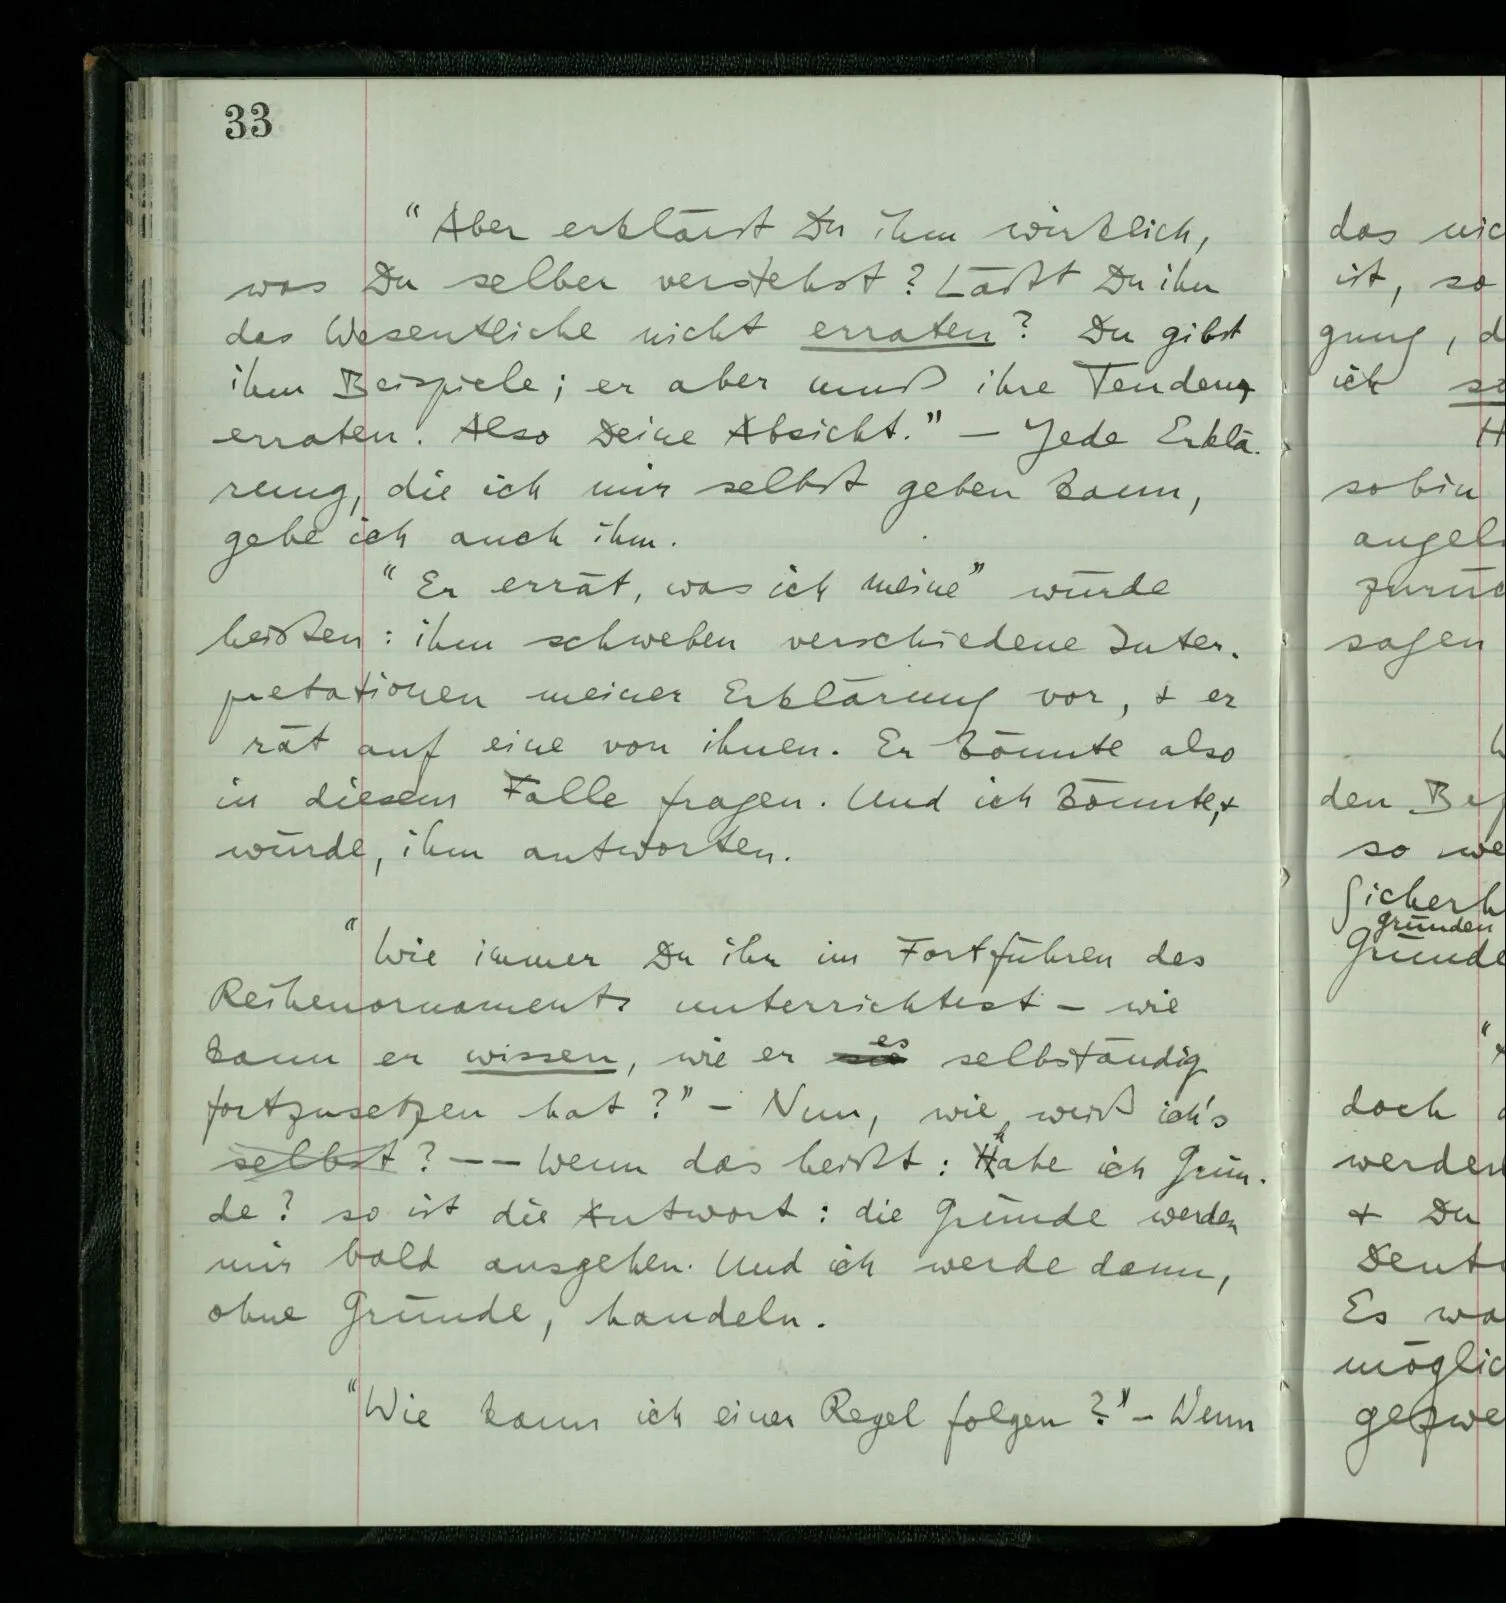 33
"Aber erklärst Du ihm wirklich,
was Du selber verstehst? Läßt Du ihn
das Wesentliche nicht erraten? Du gibst
ihm Beispiele; er aber muß ihre Tendenz
erraten. Also Deine Absicht." – Jede Erklä-
rung, die ich mir selbst geben kann,
gebe ich auch ihm.
"Er errät, was ich meine" würde
heißen: ihm schweben verschiedene Inter-
pretationen meiner Erklärung vor, & er
rät auf eine von ihnen. Er könnte also
in diesem Falle fragen. Und ich könnte, &
würde, ihm antworten.
"Wie immer Du ihn im Fortführen des
Reihenornaments unterrichtest – wie
kann er wissen, wie er sie es selbständig
fortzusetzen hat?" – Nun, wie weiß ich's
selbst? –– Wenn das heißt: habe ich Grün-
de? so ist die Antwort: die Gründe werden
mir bald ausgehen. Und ich werde dann,
ohne Gründe, handeln.
"Wie kann ich einer Regel folgen?" – Wenn
das nic
ist, so
gung, d
ich so
H
so bin
angel
zurüc
sagen
den Bef
so we
Sicherh
gründen
Gründe
doch
werden
& Du
Deut
Es wa
möglic
gezwe